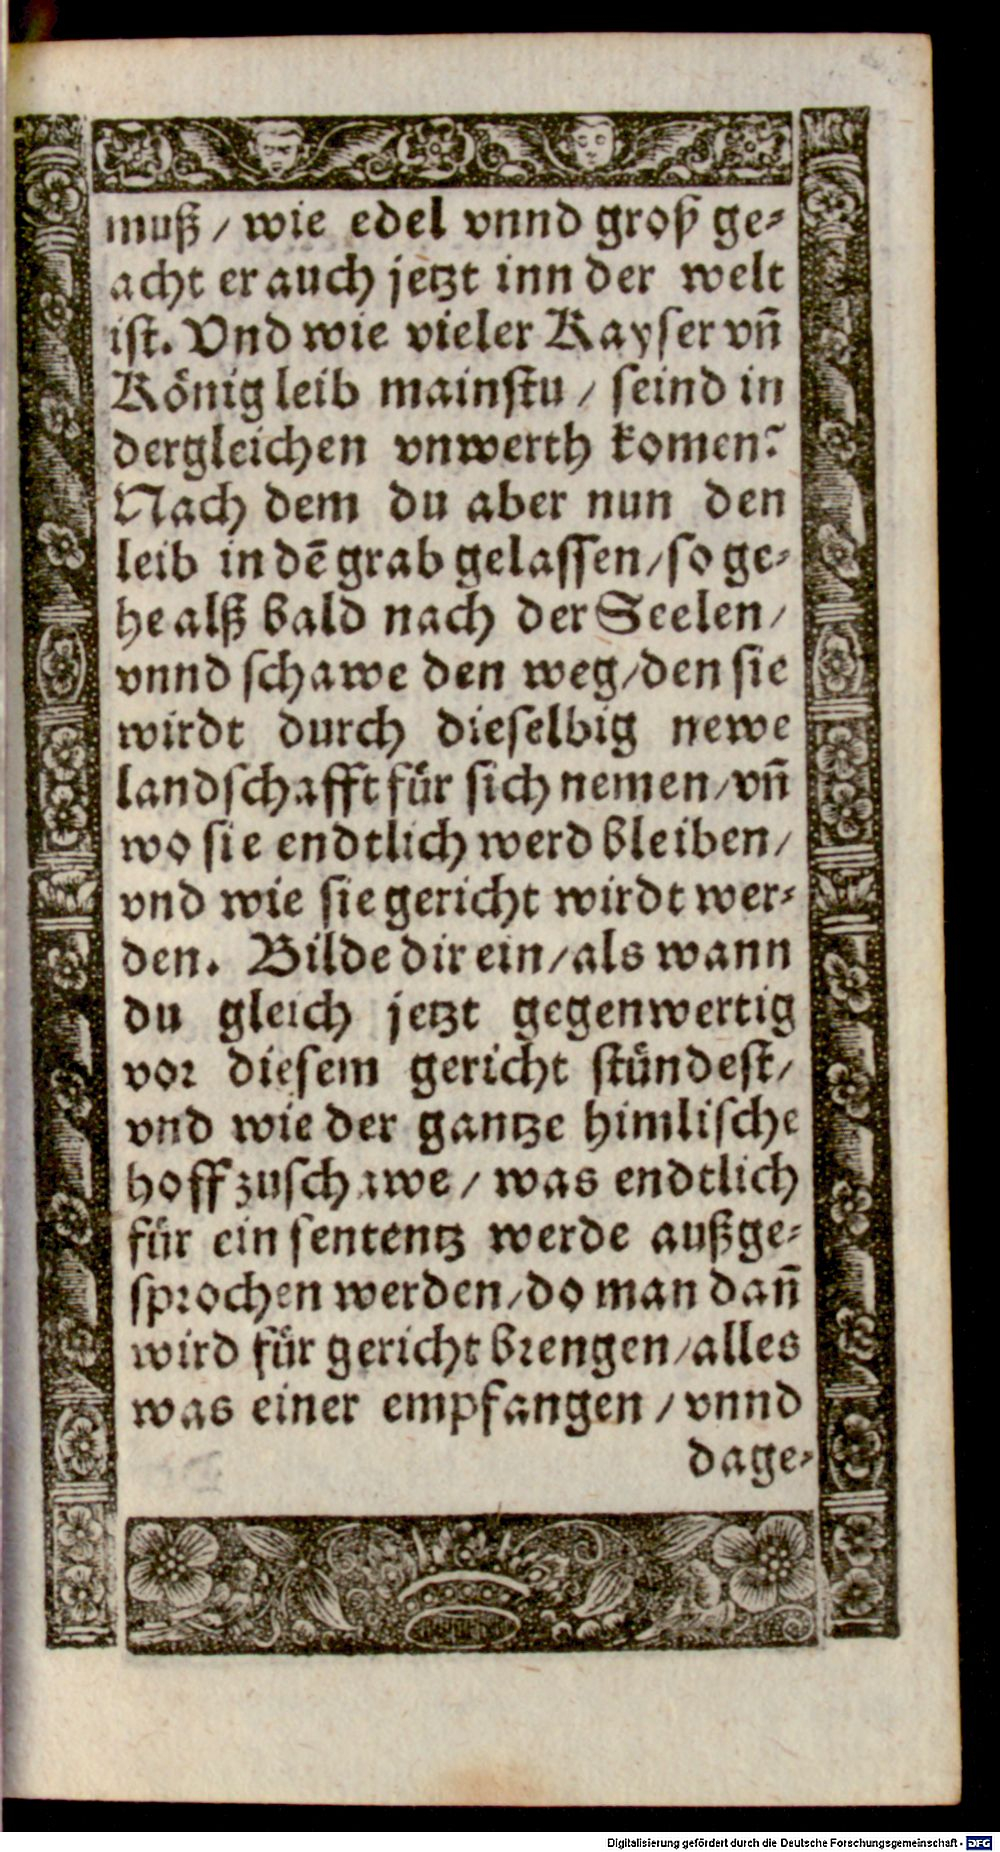 muß / wie edel vnnd groß ge⸗
acht er auch jetzt inn der welt
ist. Vnd wie vieler Kayser vn̄
König leib mainstu / seind in
dergleichen vnwerth komen?
Nach dem du aber nun den
leib in dē grab gelassen / so ge⸗
he alß bald nach der Seelen /
vnnd schawe den weg / den sie
wirdt durch dieselbig newe
landschafft für sich nemen / vn̄
wo sie endtlich werd bleiben /
vnd wie sie gericht wirdt wer⸗
den. Bilde dir ein / als wann
du gleich jetzt gegenwertig
vor diesem gericht stündest /
vnd wie der gantze himlische
hoff zuschawe / was endtlich
für ein sententz werde außge⸗
sprochen werden / do man dan̄
wird für gericht brengen / alles
was einer empfangen / vnnd
dage⸗
Digitalisierung gefördert durch die Deutsche Forschungsgemeinschaft - DFG